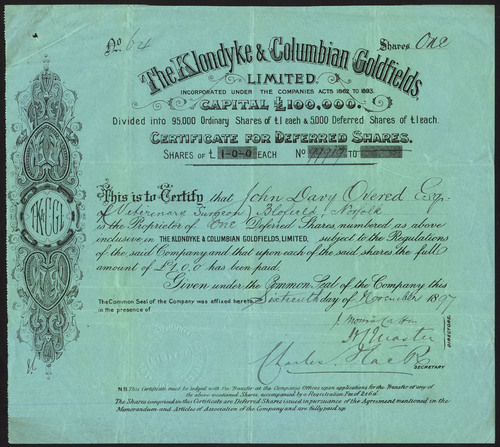 No. 64 Shares One
The Klondyke & Columbian Goldfields,
LIMITED.
INCORPORATED UNDER THE COMPANIES ACTS 1862 TO 1893.
CAPITAL £100,000.
Divided into 95,000 Ordinary Shares of £1 each & 5,000 Deferred Shares of £1 each.
CERTIFICATE FOR DEFERRED SHARES.
SHARES OF £ 1-0-0 EACH No 19917 TO
This is to Certify that John Davy Overed Esq.
of Veterenary Surgeon, Blofield, Norfolk
is the Proprietor of One Deferred Shares numbered as above
inclusive in THE KLONDYKE & COLUMBIAN GOLDFIELDS, LIMITED, subject to the Regulations
of the said Company and that upon each of the said shares the full
amount of £1.0.0 has been paid.
Given under the Common Seal of the Company this
The Common Seal of the Company was affixed hereto Sixteenth day of November 1897
in the presence of
DIRECTORS.
Charles
SECRETARY
N.B. This Certificate must be lodged with the Transfer at the Companys Offices upon applications for the Transfer of any of
the above mentioned Shares accompanied by a Registration Fee of 2s 6d
The Shares comprised in this Certificate are Deferred Shares issued in pursuance of the Agreement mentioned in the
Memorandum and Articles of Association of the Company and are fully paid up.